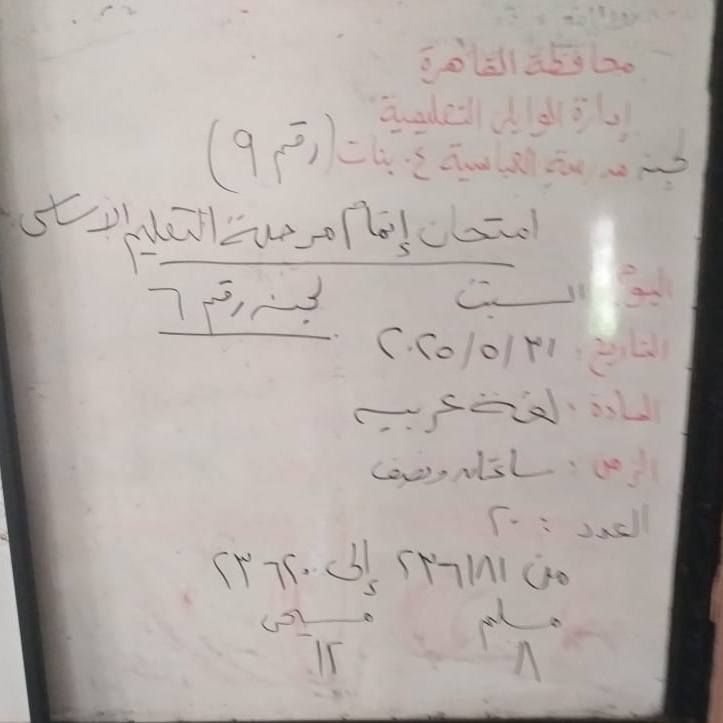 محافظة القاهرة
إدارة الوايلى التعليمية
لجنة مدرسة العباسية ع. بنات (رقم ٩)
امتحان إتمام مرحلة التعليم الأساسى
اليوم: السبت لجنة رقم ٦
التاريخ: ٢٠٢٥/٥/٣١
المادة: لغة عربية
الزمن: ساعتان ونصف
العدد: ٢٠
من ٢٣٦١٨١ إلى ٢٣٦٢٠٠
مسلم مسيحى
٨ ١٢